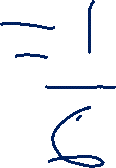 = 1/6